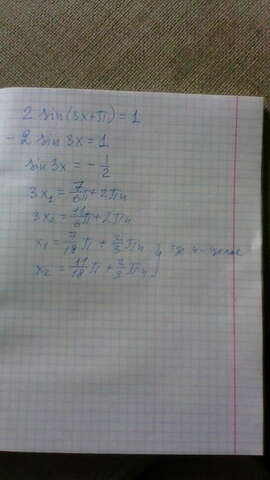 2 sin(3x+π)=1
-2 sin 3x = 1
sin 3x = -1/2
3x₁ = 7/6π + 2πn
3x₂ = 11/6π + 2πn
x₁ = 7/18 π + 2/3 πn } , где n-целое
x₂ = 11/18 π + 2/3 πn